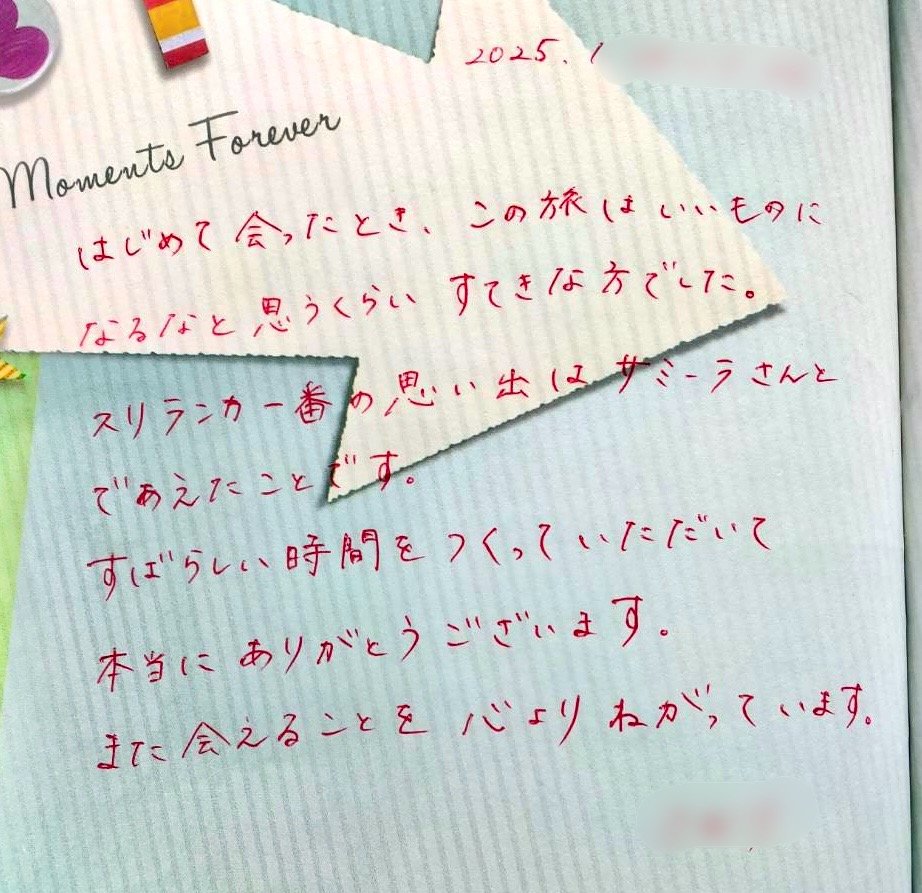 2025. 1
Moments Forever
はじめて会ったとき、この旅はいいものに
なるなと思うくらいすてきな方でした。
スリランカ一番の思い出はサミーラさんと
であえたことです。
すばらしい時間をつくっていただいて
本当にありがとうございます。
また会えることを心よりねがっています。